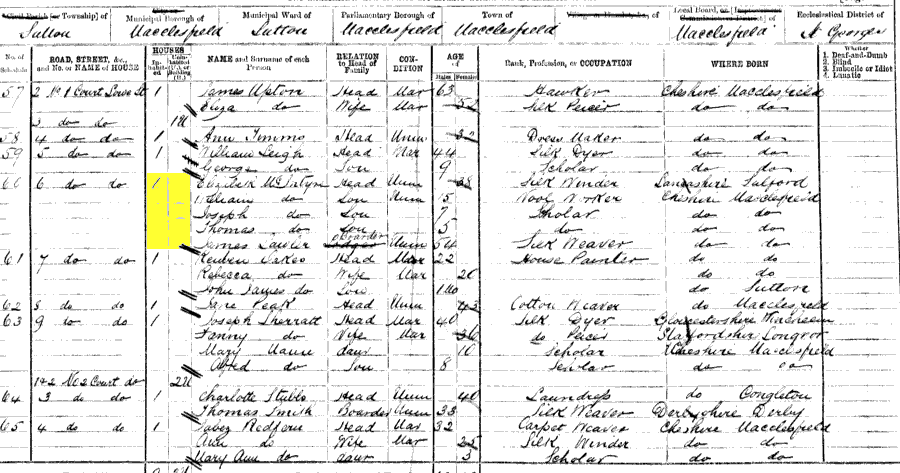 Civil Parish [or Township] of Municipal Borough of Municipal Ward of Parliamentary Borough of Town of Local Board, or Ecclesiastical District of
Sutton Macclesfield Sutton Macclesfield Macclesfield Macclesfield St Georges
No. of Schedule ROAD, STREET, &c., and No. or NAME of HOUSE HOUSES Inhabited NAME and Surname of each Person RELATION to Head of Family CONDITION AGE Males Females Rank, Profession, or OCCUPATION WHERE BORN Whether 1. Deaf-and-Dumb 2. Blind 3. Imbecile or Idiot 4. Lunatic
57 2 No 1 Court Lowe St 1 James Upton Head Mar 63 Hawker Cheshire Macclesfield
Eliza do Wife Mar 52 Silk Piecer do do
3 do do 1U
58 4 do do 1 Ann Timms Head Unm 32 Dress Maker do do
59 5 do do 1 William Leigh Head Mar 44 Silk Dyer do do
George do Son 9 Scholar do do
60 6 do do 1 Elizabeth McIntyre Head Unm 38 Silk Winder Lancashire Salford
William do Son Unm Wool Worker Cheshire Macclesfield
Joseph do Son 7 Scholar do do
Thomas do Son 5 do do do
James Lawler Boarder Unm 54 Silk Weaver do do
61 7 do do 1 Reuben Oakes Head Mar 22 House Painter do do
Rebecca do Wife Mar 20 do do
John James do Son do Sutton
62 8 do do 1 Jane Peak Head Unm 43 Cotton Weaver do Macclesfield
63 9 do do 1 Joseph Sherratt Head Mar 40 Silk Dyer Gloucestershire
Fanny do Wife Mar 36 do Piecer Staffordshire Longnor
Mary Hann daur 10 Scholar Cheshire Macclesfield
Alfred do Son 8 Scholar do do
1&2 No 2 Court do 2U
64 3 do do 1 Charlotte Stubbs Head Unm 40 Laundress do Congleton
Thomas Smith Boarder Unm 33 Silk Weaver Derbyshire Derby
65 4 do do 1 Jabez Redfern Head Mar 32 Carpet Weaver Cheshire Macclesfield
Ann do Wife Mar 25 Silk Winder do do
Mary Ann do daur 3 Scholar do do